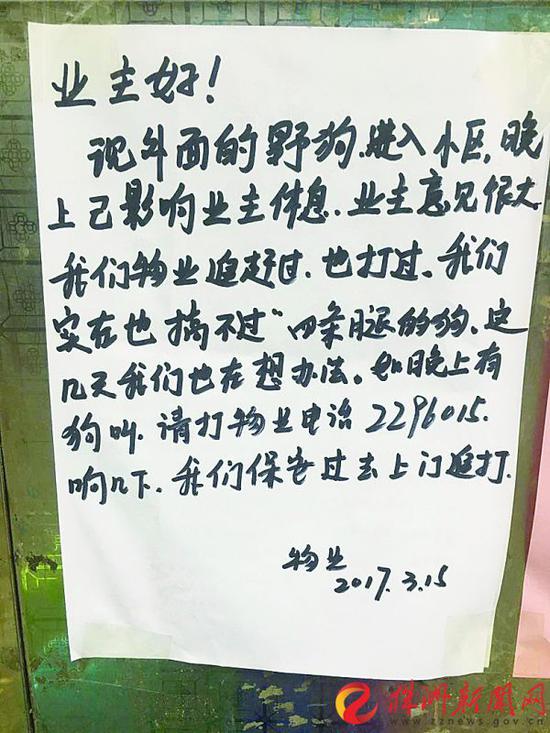 业主好！
现外面的野狗.进入小区,晚
上己影响业主休息.业主意见很大
我们物业追赶过.也打过.我们
实在也搞不过"四条腿的狗.这
几天我们也在想办法。如晚上有
狗叫.请打物业电话2296015.
响几下.我们保安过去上门追打.
物业
2017.3.15
株洲新闻网
www.zznews.gov.cn